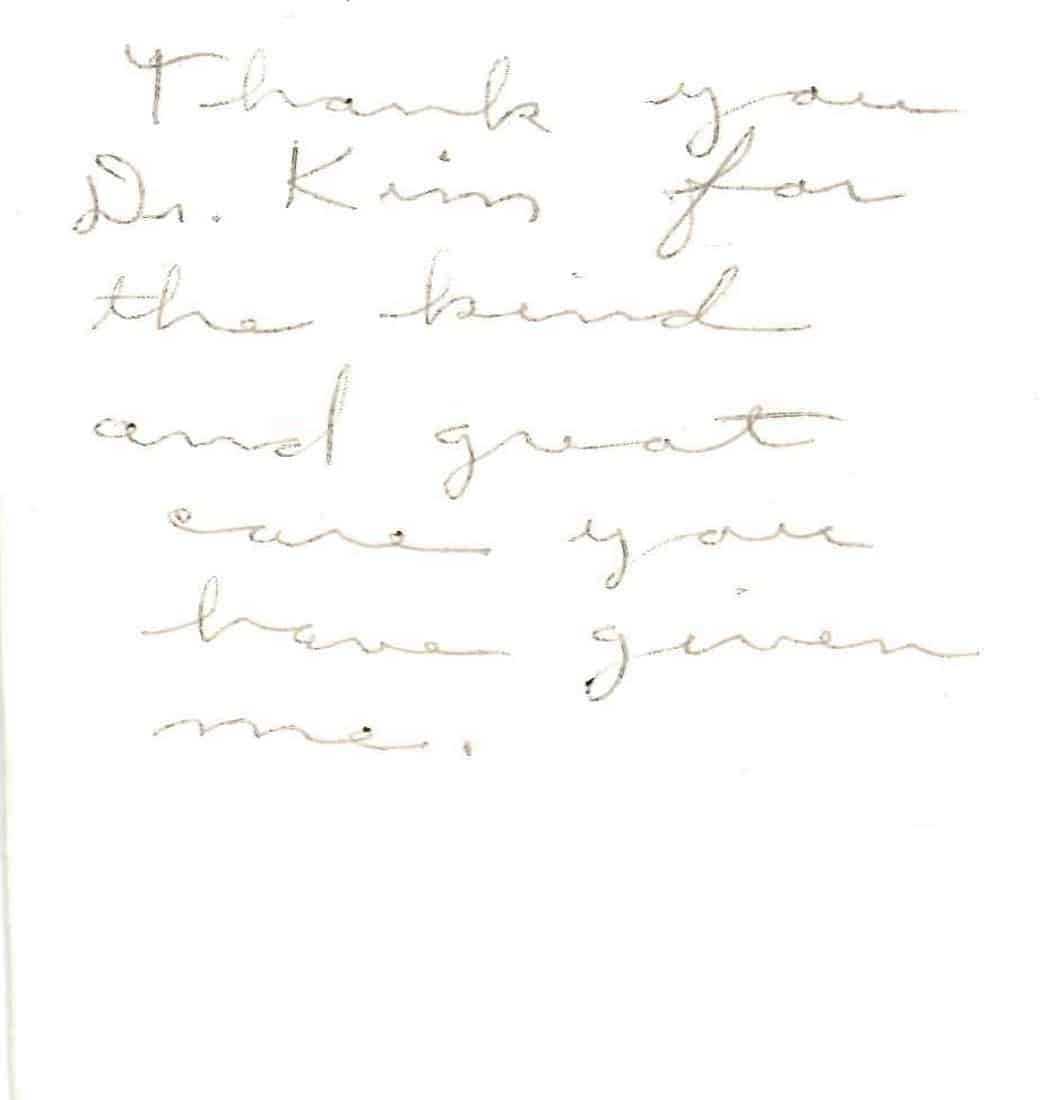 Thank you
Dr. Kim for
the kind
and great
care you
have given
me.